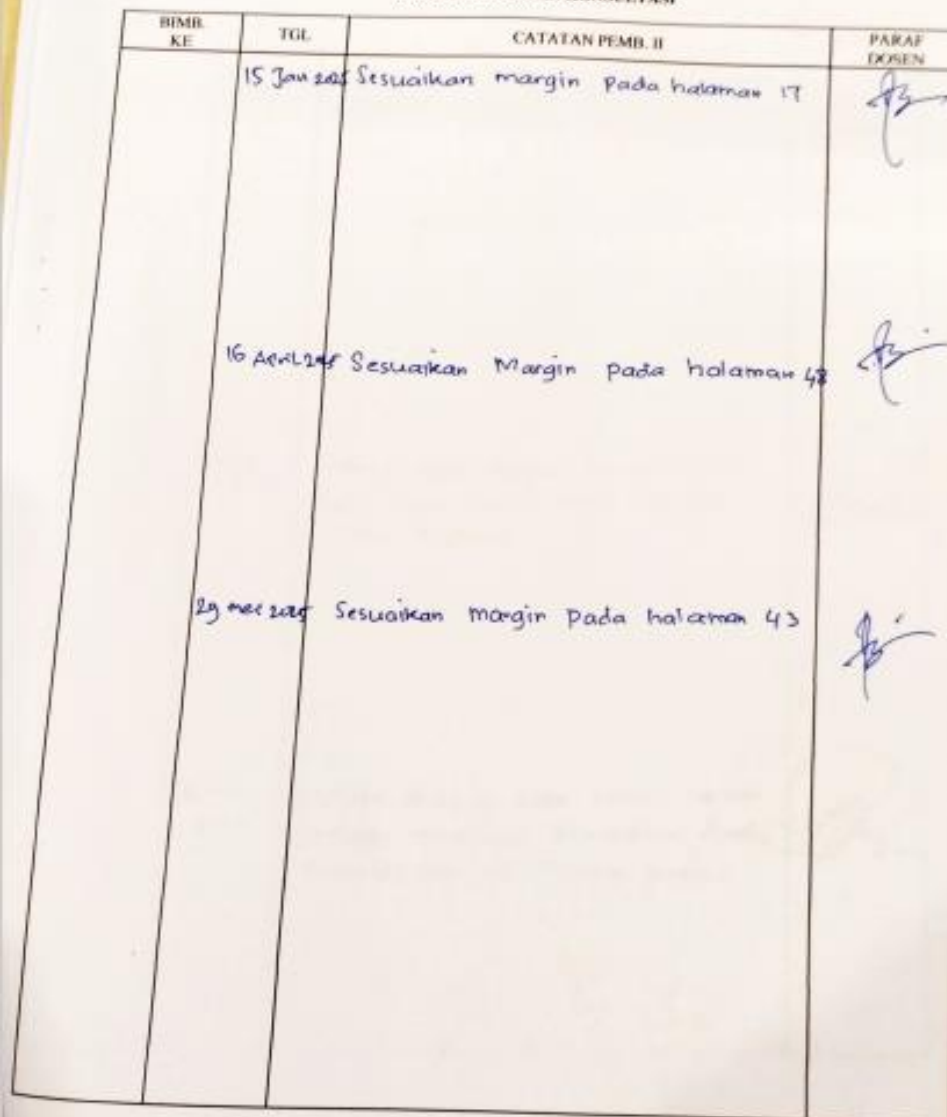 BIMB. KE TGL CATATAN PEMB. II PARAF DOSEN
15 Jan 2025 Sesuaikan margin Pada halaman 17
16 April Sesuaikan Margin pada halaman
29 2025 Sesuaikan margin pada halaman 43